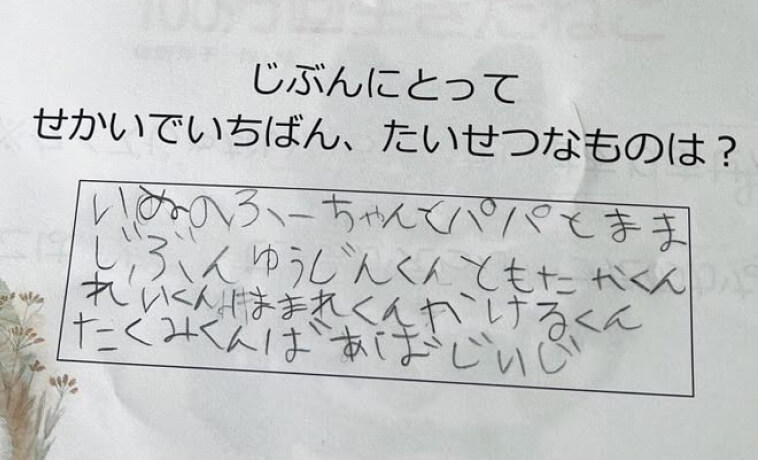 じぶんにとって
せかいでいちばん、たいせつなものは？
いぬのふーちゃんとパパとまま
じぶんゆうじんくんともたかくん
れいくんはままれくんかけるくん
たくみくんばあばじいじ